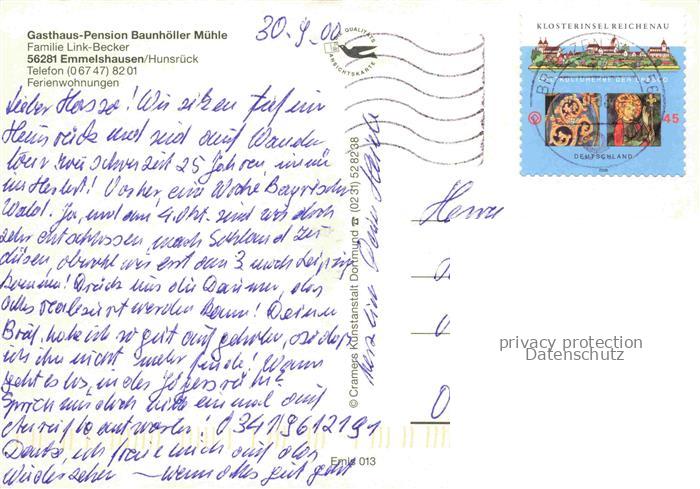 Gasthaus-Pension Baunhöller Mühle
Familie Link-Becker
56281 Emmelshausen/Hunsrück
Telefon (0 67 47) 82 01
Ferienwohnungen
30.9.00
QUALITÄTS
ANSICHTSKARTE
KLOSTERINSEL REICHENAU
KULTURERBE DER UNESCO
45
DEUTSCHLAND
Lieber Hasso! Wir sitzen tief im
Hunsrück und sind auf Wander
tour wie schon seit 25 Jahren immer
im Herbst! Vorher eine Woche Bayrischer
Wald. Ja, und am 4. Okt. sind wir doch
sehr entschlossen, nach Estland zu
düsen, obwohl wir erst am 3. nach Leipzig
kommen! Drück uns die Daumen, das
alles realisiert werden kann! Deinen
Brief habe ich so gut aufgehoben, daß
ich ihn nicht mehr finde! Wann
geht es los, in der
Sprich mir doch noch einmal auf
Anrufbeantworter! 0341 9612191
Danke, ich freue mich auf das
Wiedersehen – wenn alles gut geht
Herzlich Deine
© Cramers Kunstanstalt Dortmund ☎ (0231) 52 82 38
Herrn
privacy protection
Datenschutz
Emls 013